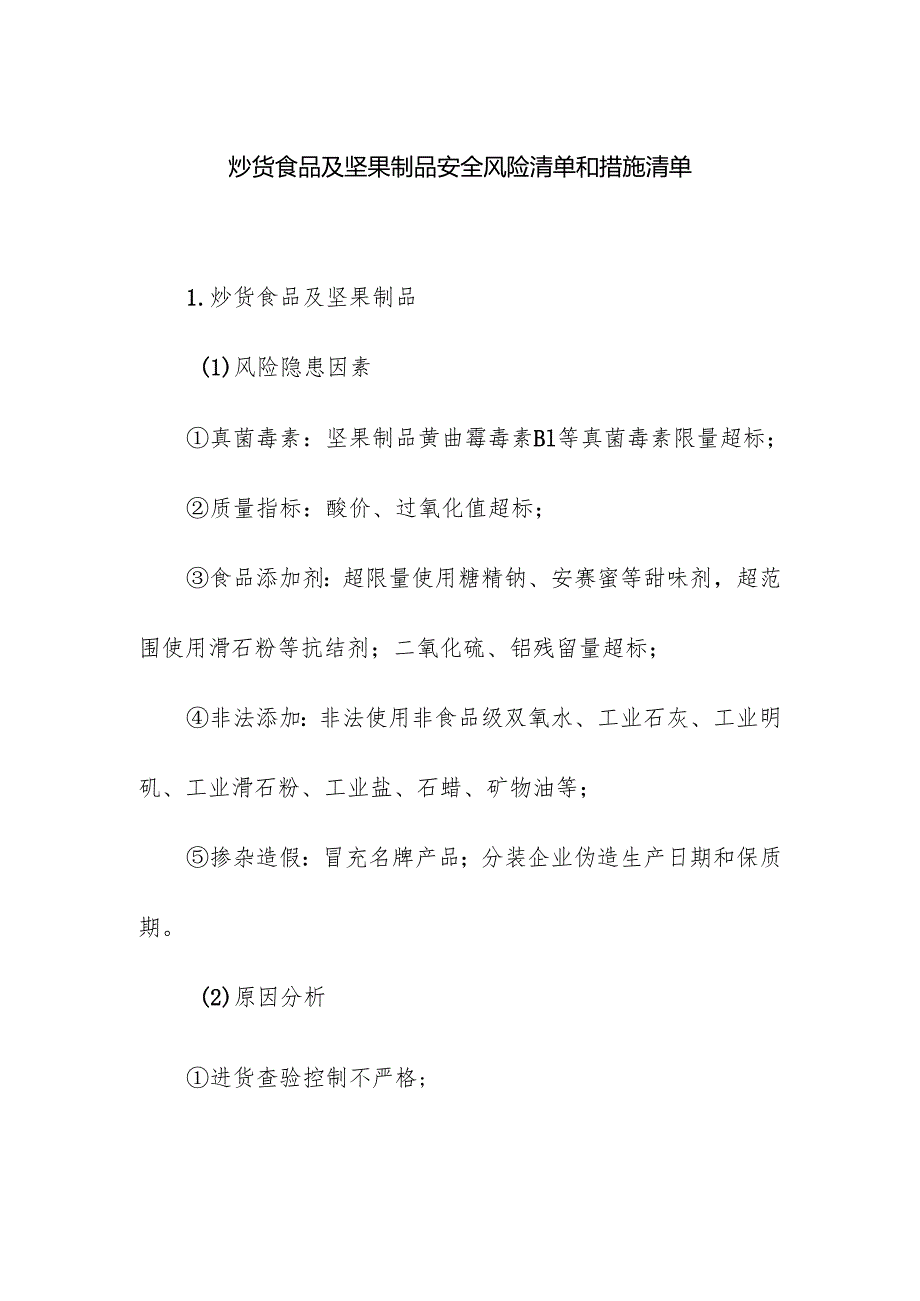 炒货食品及坚果制品安全风险清单和措施清单
1.炒货食品及坚果制品
(1)风险隐患因素
①真菌毒素：坚果制品黄曲霉毒素Bl等真菌毒素限量超标；
②质量指标：酸价、过氧化值超标；
③食品添加剂：超限量使用糖精钠、安赛蜜等甜味剂，超范
围使用滑石粉等抗结剂；二氧化硫、铝残留量超标；
④非法添加：非法使用非食品级双氧水、工业石灰、工业明
矾、工业滑石粉、工业盐、石蜡、矿物油等；
⑤掺杂造假：冒充名牌产品；分装企业伪造生产日期和保质
期。
(2)原因分析
①进货查验控制不严格；